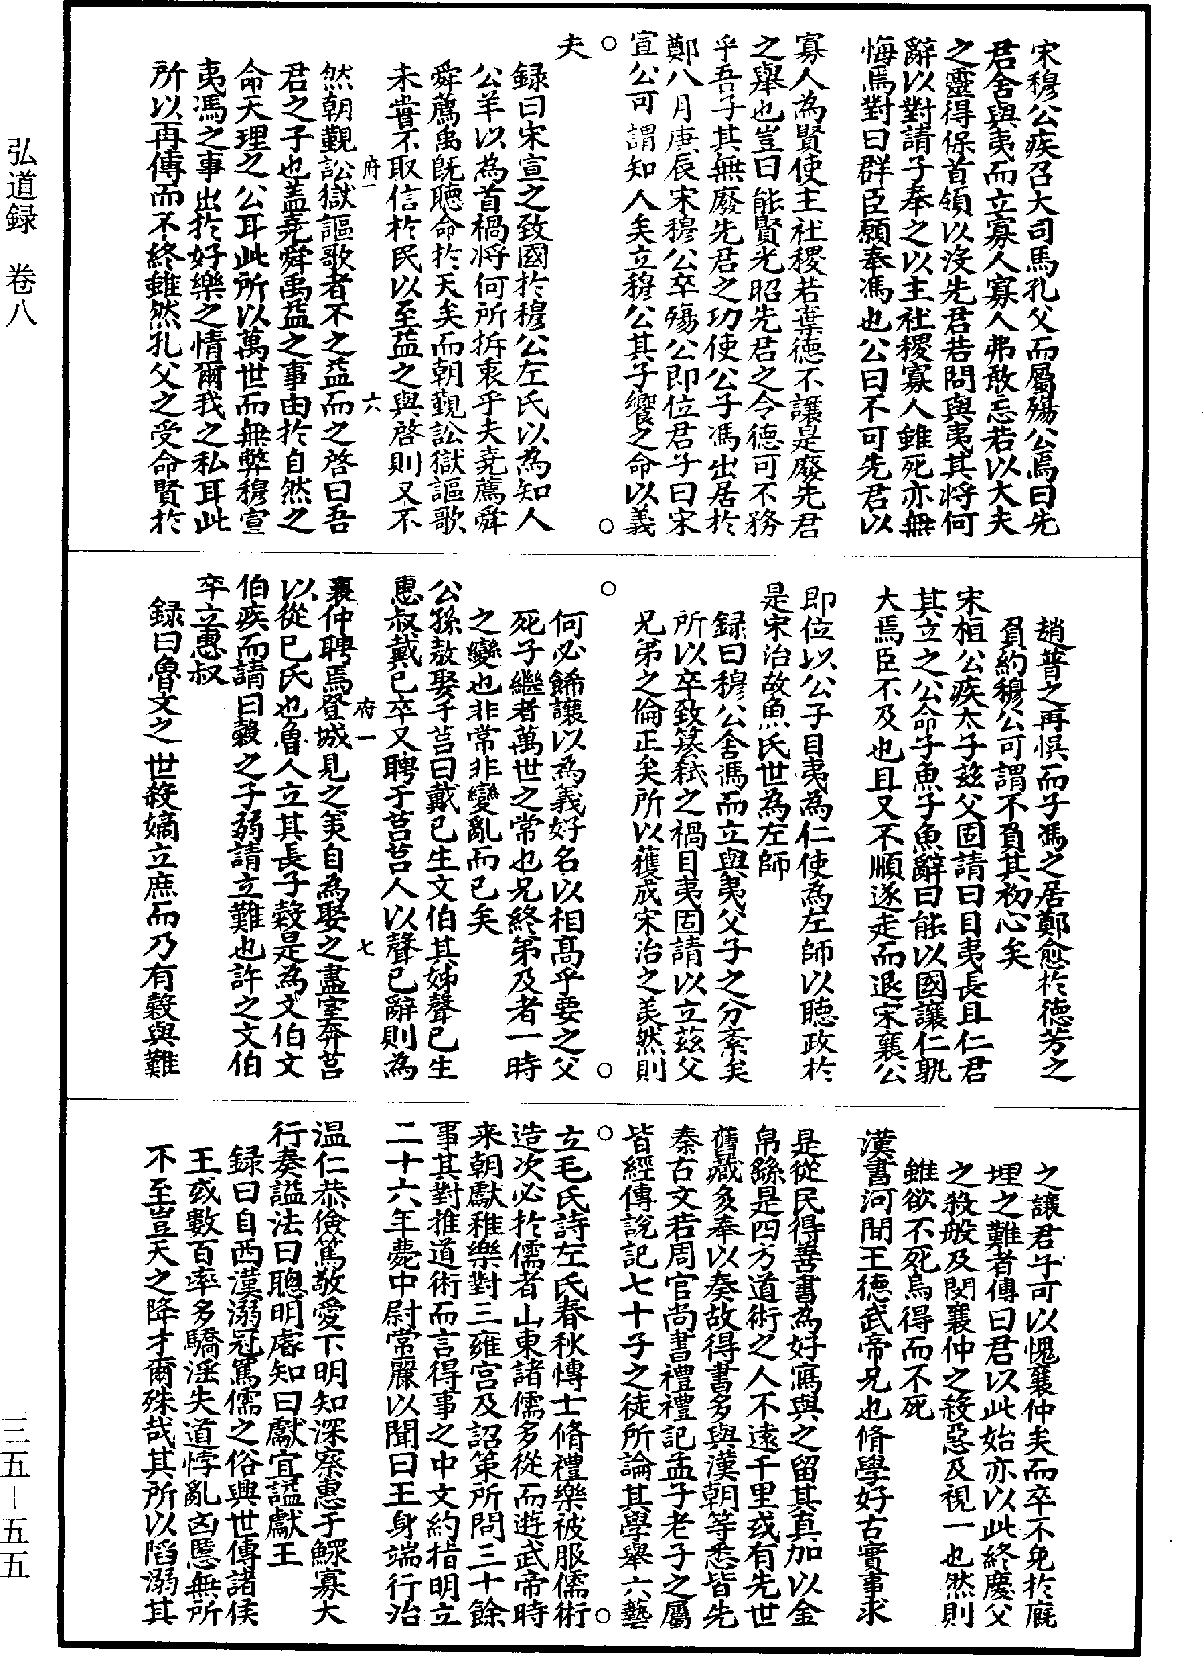 弘道録　卷八
宋穆公疾召大司馬孔父而屬殤公焉曰先
君舍與夷而立寡人寡人弗敢忘若以大夫
之靈得保首領以沒先君若問與夷其將何
辭以對請子奉之以主社稷寡人雖死亦無
悔焉對曰群臣願奉馮也公曰不可先君以
寡人為賢使主社稷若棄德不讓是廢先君
之舉也豈曰能賢光昭先君之令德可不務
乎吾子其無廢先君之功使公子馮出居於
鄭八月庚辰宋穆公卒殤公即位君子曰宋
宣公可謂知人矣立穆公其子饗之命以義
夫
録曰宋宣之致國於穆公左氏以為知人
公羊以為首禍將何所折衷乎夫堯薦舜
舜薦禹既聽命於天矣而朝覲訟獄謳歌
未嘗不取信於民以至益之與啓則又不
府一　六
然朝覲訟獄謳歌者不之益而之啓曰吾
君之子也盖堯舜禹益之事由於自然之
命天理之公耳此所以萬世而無弊穆宣
夷馮之事出於好樂之情爾我之私耳此
所以再傳而不終雖然孔父之受命賢於
趙普之再悞而子馮之居鄭愈於德芳之
負約穆公可謂不負其初心矣
宋桓公疾太子兹父固請曰目夷長且仁君
其立之公命子魚子魚辭曰能以國讓仁孰
大焉臣不及也且又不順遂走而退宋襄公
即位以公子目夷為仁使為左師以聽政於
是宋治故魚氏世為左師
録曰穆公舍馮而立與夷父子之分紊矣
所以卒致簒弒之禍目夷固請以立兹父
兄弟之倫正矣所以獲成宋治之美然則
何必餙讓以為義好名以相高乎要之父
死子繼者萬世之常也兄終弟及者一時
之變也非常非變亂而已矣
公孫敖娶于莒曰戴己生文伯其娣聲己生
惠叔戴己卒又聘于莒莒人以聲己辭則為
府一　七
襄仲聘焉登城見之美自為娶之盡室奔莒
以從己氏也魯人立其長子穀是為文伯文
伯疾而請曰穀之子弱請立難也許之文伯
卒立惠叔
録曰魯文之世殺嫡立庶而乃有穀與難
之讓君子可以愧襄仲矣而卒不免於庭
埋之難者傳曰君以此始亦以此終慶父
之殺般及閔襄仲之殺惡及視一也然則
雖欲不死烏得而不死
漢書河間王德武帝兄也脩學好古實事求
是從民得善書為好寫與之留其真加以金
帛繇是四方道術之人不遠千里或有先世
舊藏多奉以奏故得書多與漢朝等悉皆先
秦古文若周官尚書禮禮記孟子老子之屬
皆經傳說記七十子之徒所論其學舉六藝
立毛氏詩左氏春秋博士脩禮樂被服儒術
造次必於儒者山東諸儒多從而遊武帝時
来朝獻雅樂對三雍宮及詔策所問三十餘
事其對推道術而言得事之中文約指明立
二十六年薨中尉常麗以聞曰王身端行治
温仁恭儉篤敬愛下明知深察惠于鰥寡大
行奏謚法曰聰明睿知曰獻宜謚獻王
録曰自西漢溺冠罵儒之俗興世傳諸侯
王或數百率多驕淫失道悖亂凶慝無所
不至豈天之降才爾殊哉其所以陷溺其
三五－五五